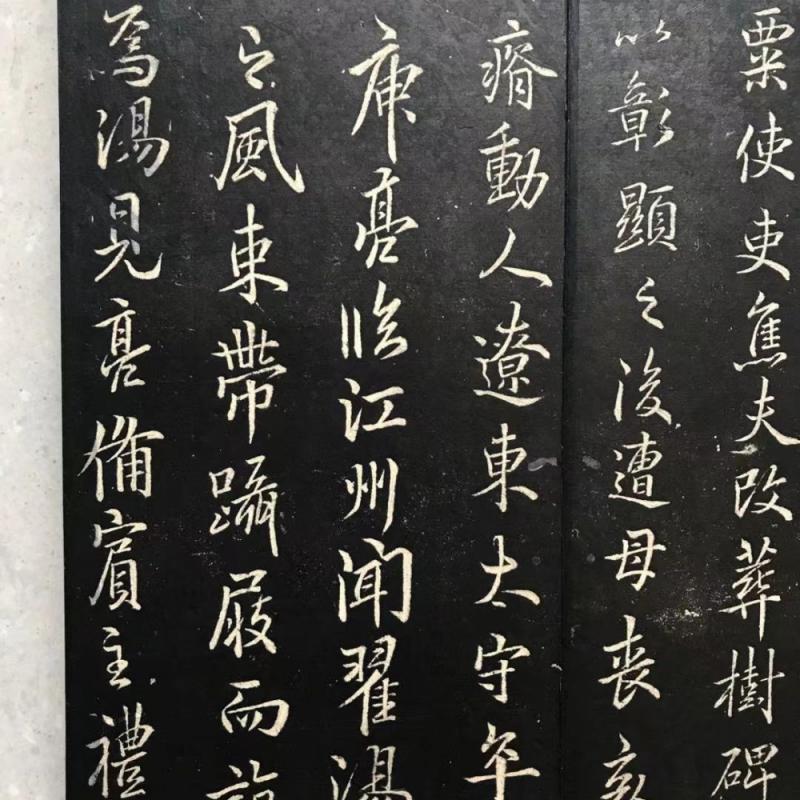 粟使吏焦夫改葬樹碑
以彰顯之後遭母喪哀
瘠動人遼東太守卒
庾亮臨江州聞翟湯
之風束帶躡屐而詣
焉湯見亮備賓主禮